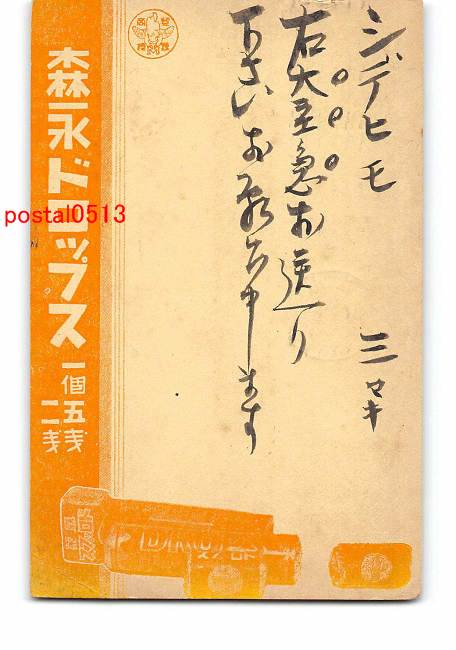 シデヒモ 三マキ
右大至急お送り
下さいお願い申します
森永ドロップス 一個 五銭 二銭
postal0513